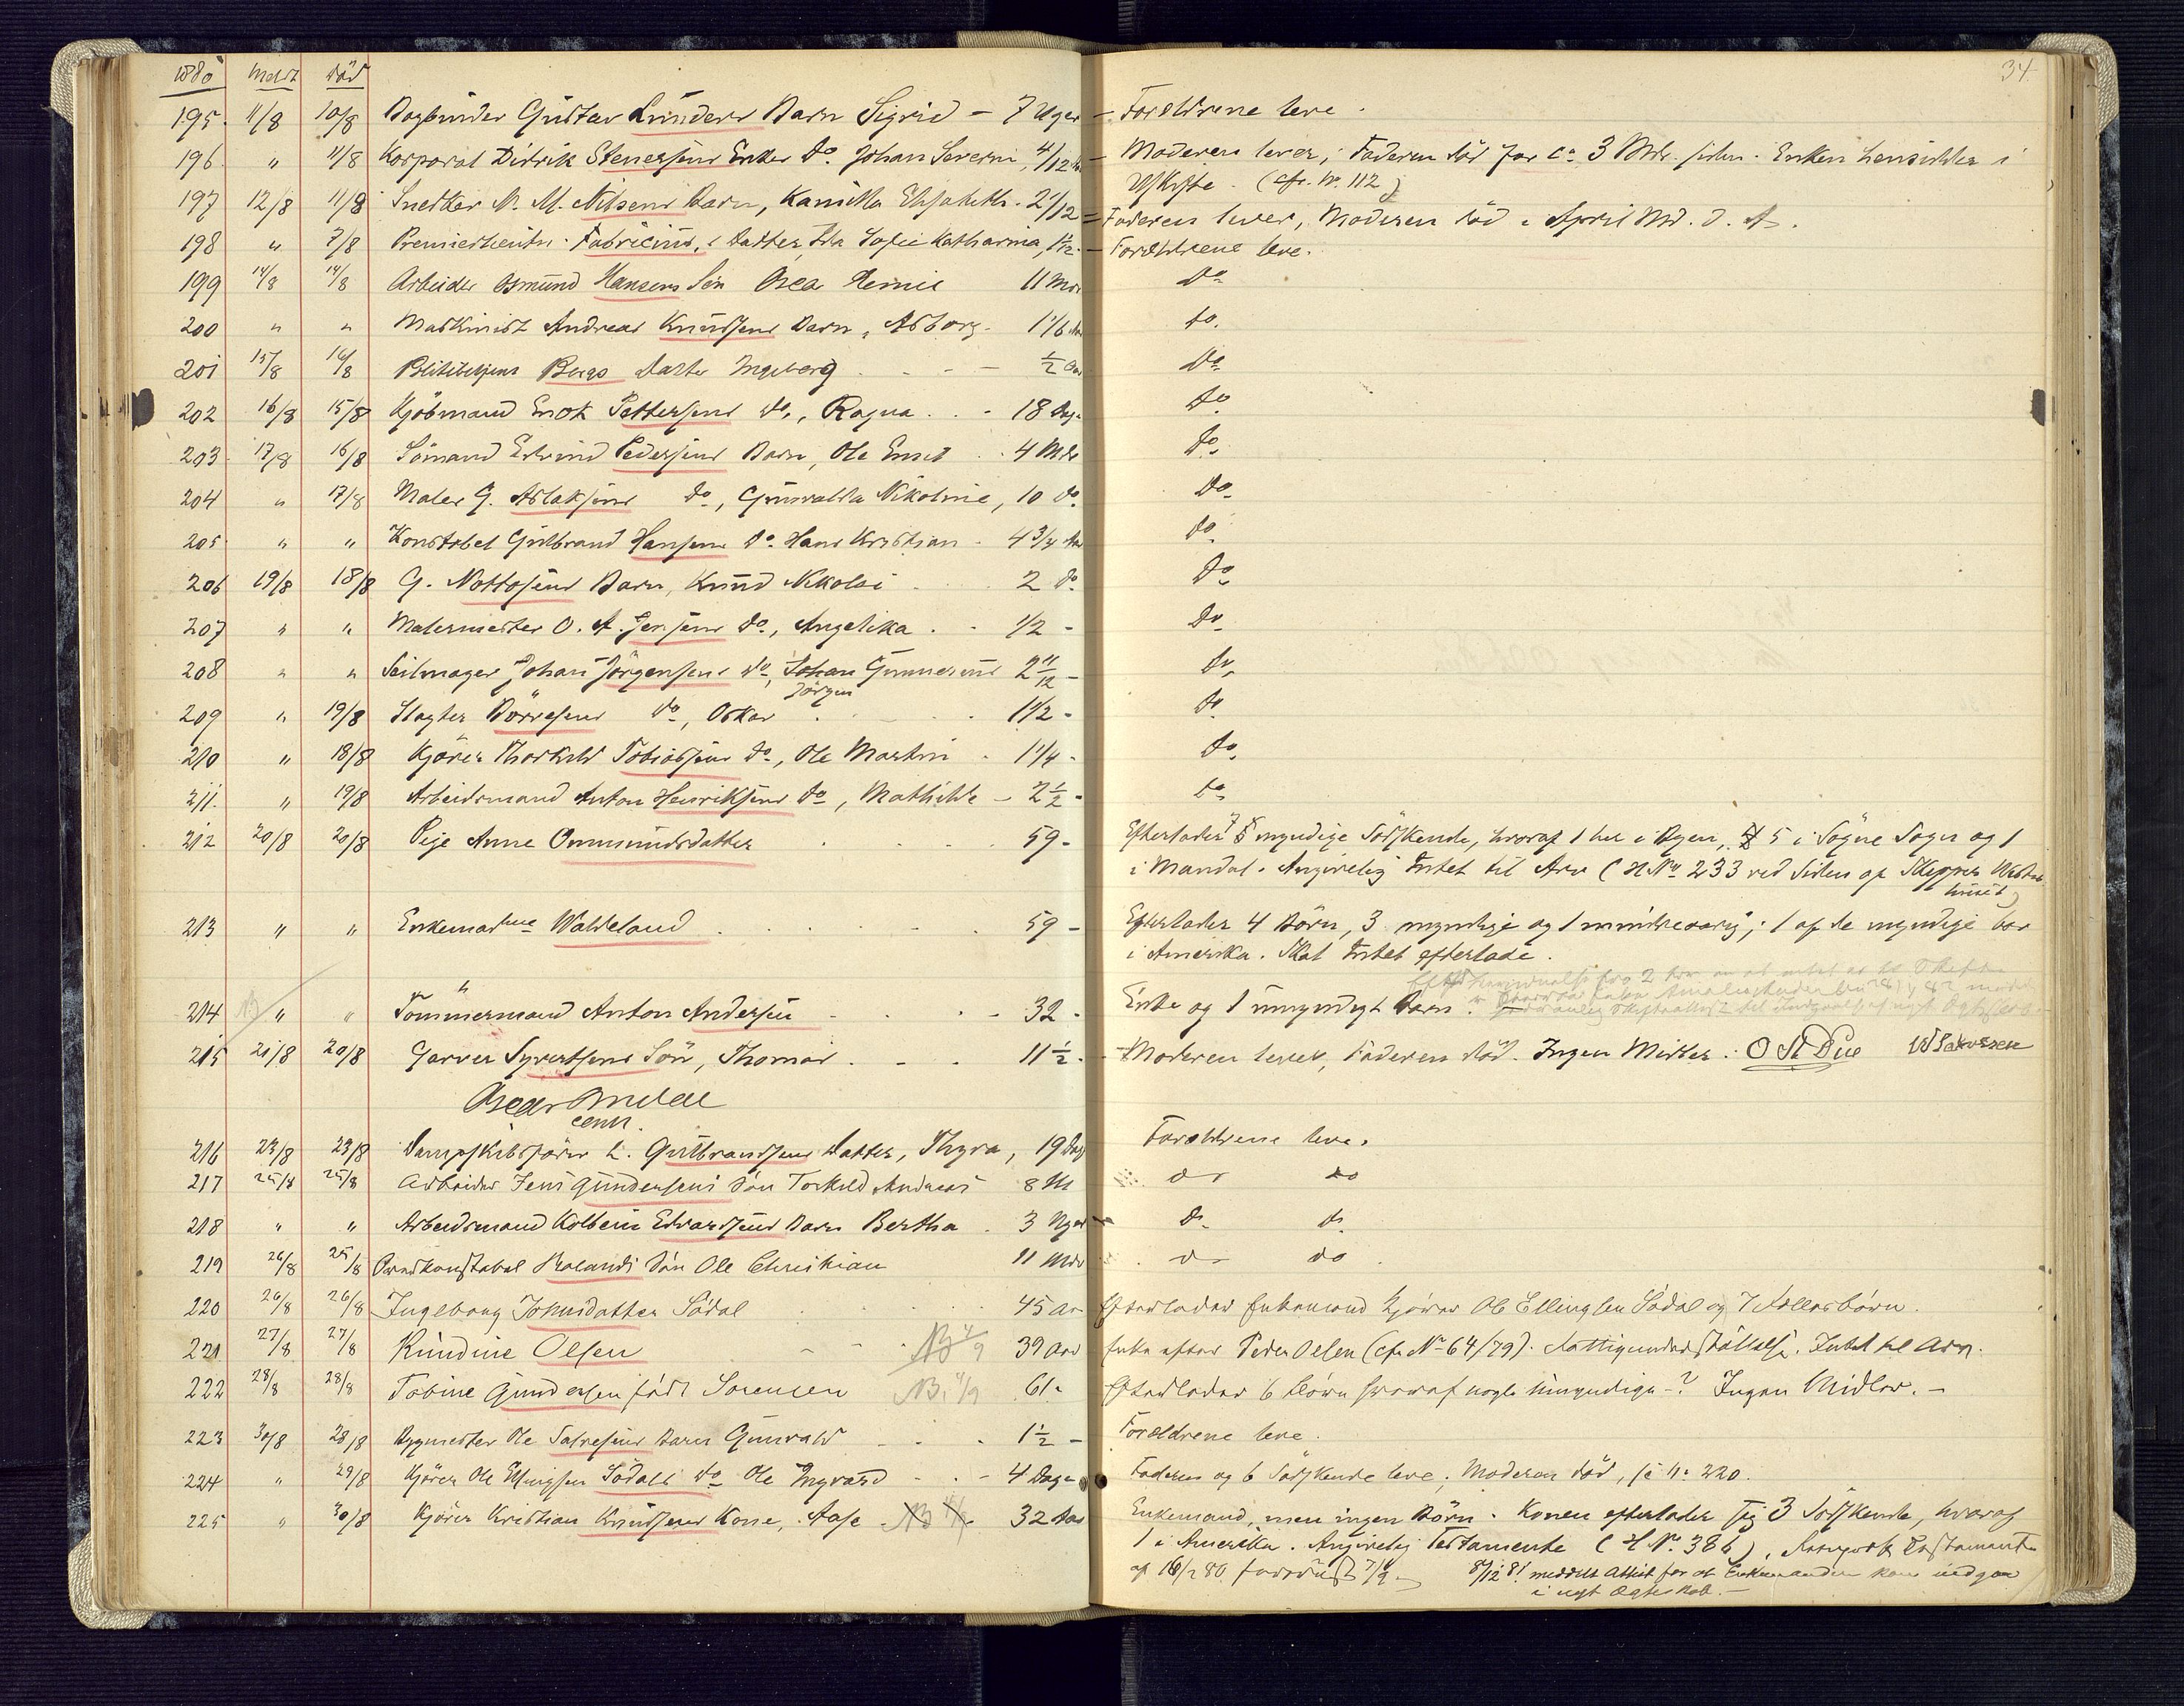 1880 Meldt Död 34
195. 11/8 10/8 Bogbinder Gustav Lunders Barn Sigrid – 7 Uger – Forældrene leve.
196 " 11/8 Korporal Didrik Stenersens Enkes Do. Johan Severin, 4/12 – Moderen lever; Faderen död for ca 3 Mdr. siden. Enken hensidder i
Uskifte. (cfr. No. 112)
197 12/8 11/8 Snedker N. M. Nilsens Barn, Kamilla Elisabeth. 2 1/12 – Faderen lever, Moderen död i April Md. d. A.
198 " 7/8 Premierlieutn. Fabricius, Datter, Ida Sofie Katharina, 1 1/2 – Forældrene leve.
199 14/8 14/8 Arbeider Osmund Hansens Sön 11 Mdr Do
200 " " Maskinist Andreas Knudsens Barn, Asborg. 1 1/6 Aar Do.
201 15/8 14/8 Bergs Datter Ingeborg 1/2 Aar Do
202 16/8 15/8 Kjöbmand Enok Pettersens Do., Ragna 18 Dage Do
203 17/8 16/8 Sömand Pedersens Barn, Ole 4 Mdr Do
204 " 17/8 Maler G. Aslaksens Do, Gunvalda Nikoline, 10 Do. Do
205 " " Konstabel Gulbrand Hansens Do. Hans Kristian 4 3/4 Aar Do
206 19/8 18/8 G. Nottosens Barn, Knud Nikolai 2 Do. Do
207 " " Malermester O. A. Jensens Do., Angelika 1/2 – Do
208 " " Seilmager Johan Jörgensens Do, Johan Gunnerius 2 11/12 – Do
Jörgen
209 " 19/8 Slagter Börresens Do, Oskar 1 1/2 – Do
210 " 18/8 Kjörer Thorkild Tobiassens Do, Ole Martin 1 1/4 – Do
211. " 19/8 Arbeidsmand Anton Henriksens Do, Mathilde – 2 1/2 – Do
212 20/8 20/8 Pige Anne Ommundsdatter 59 – Efterlader 7 myndige Södskende, hvoraf 1 her i Byen, 5 i Sögne Sogn og 1
i Mandal. Angivelig Intet til Arv (H No. 233 ved Siden af Skipper
213 " " Enkemadme Walseland 59 – Efterlader 4 Börn, 3 myndige og 1 mindreaarig; 1 af de myndige bor
i Amerika. Skal Intet efterlade.
214 " " Tömmermand Anton Andersen 32 – Enke og 1 umyndigt Barn.
215 21/8 20/8 Garver Syvertsens Sön, Thomas 11 1/2 – Moderen lever, Faderen död. Ingen Midler.
216 23/8 23/8 Dampskibsförer L. Gulbrandsens Datter, Thyra, 19 Dage Forældrene leve.
217 25/8 25/8 Arbeider Jens Gundersens Sön Torkild Andreas 8 M do do
218 " " Arbeidsmand Kolbein Edvardsens Barn Bertha 3 Uger – Do do
219 26/8 25/8 Rolands Sön Ole Christian 11 Mdr do do
220 26/8 26/8 Ingeborg Johnsdatter Södal 45 Aar Efterlader Enkemand Kjörer Ole Ellingsen Södal og 7 Fællesbörn.
221 27/8 27/8 Rundine Olsen NB 4/9 39 Aar Enke efter Peder Olsen (cfr No 64/79). Fattigunderstöttelse. Intet til Arv.
222 28/8 28/8 Tobine Gundersen född Sörensen NB. 4/9 61 – Efterlader 6 Börn hvoraf nogle umyndige –? Ingen Midler. –
223 30/8 28/8 Bygmester Ole Salvesens Barn Gunvald 1 1/2 – Forældrene leve.
224 " 29/8 Kjörer Ole Ellingsen Södals Do Ole Ingvard 4 Dage Faderen og 6 Södskende leve; Moderen död, se No. 220.
225 " 30/8 Kjörer Kristian Knudsens Kone, Aase NB 32 Aar Enkemand, men ingen Börn. Konen efterlader sig 3 Södskende, hvoraf
1 i Amerika. Angivelig Testamente (H No. 386).
8/12 81 meddelt Attest for at Enkemanden kan indgaa
i nyt Ægteskab. –